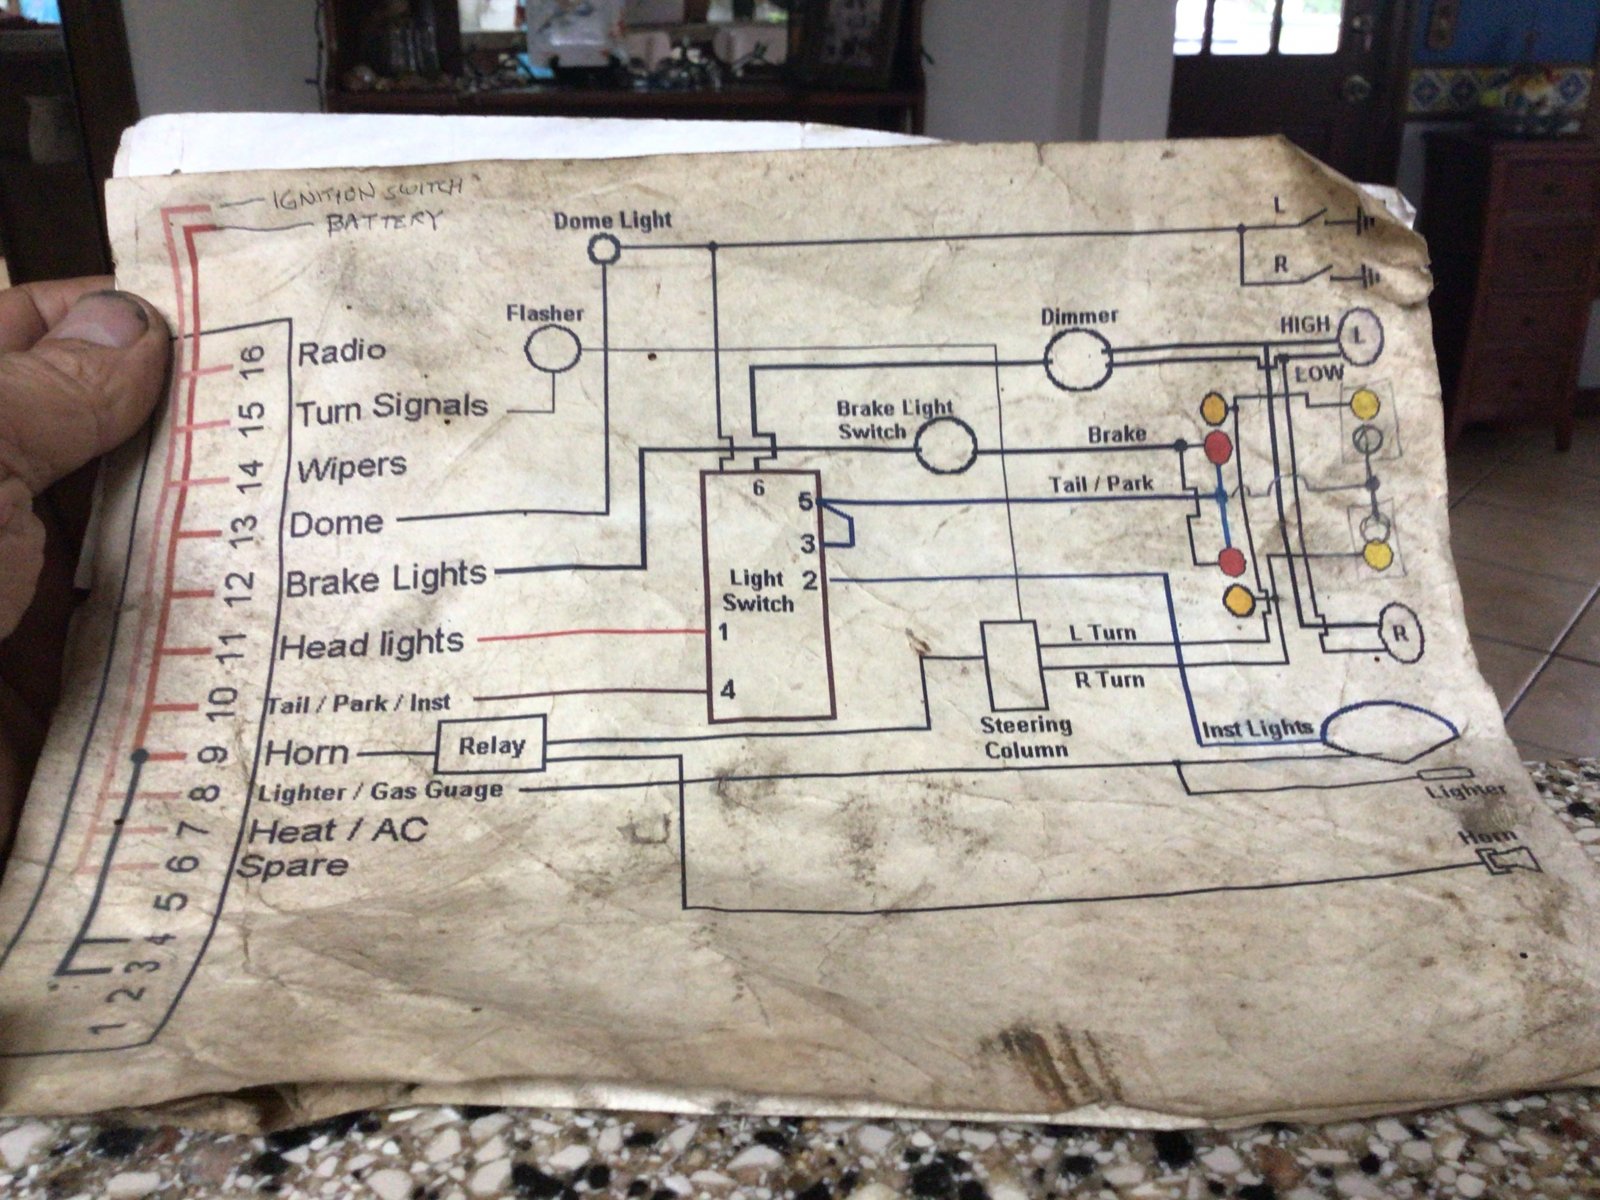 IGNITION SWITCH
BATTERY
Dome Light
L
R
Flasher
Dimmer
HIGH
L
LOW
16 Radio
15 Turn Signals
14 Wipers
13 Dome
12 Brake Lights
11 Head lights
10 Tail / Park / Inst
9 Horn
8 Lighter / Gas Guage
7 Heat / AC
6 Spare
5
4
3
2
1
Relay
Brake Light
Switch
Brake
Tail / Park
6
5
3
2
Light
Switch
1
4
L Turn
R Turn
Steering
Column
R
Inst Lights
Lighter
Horn